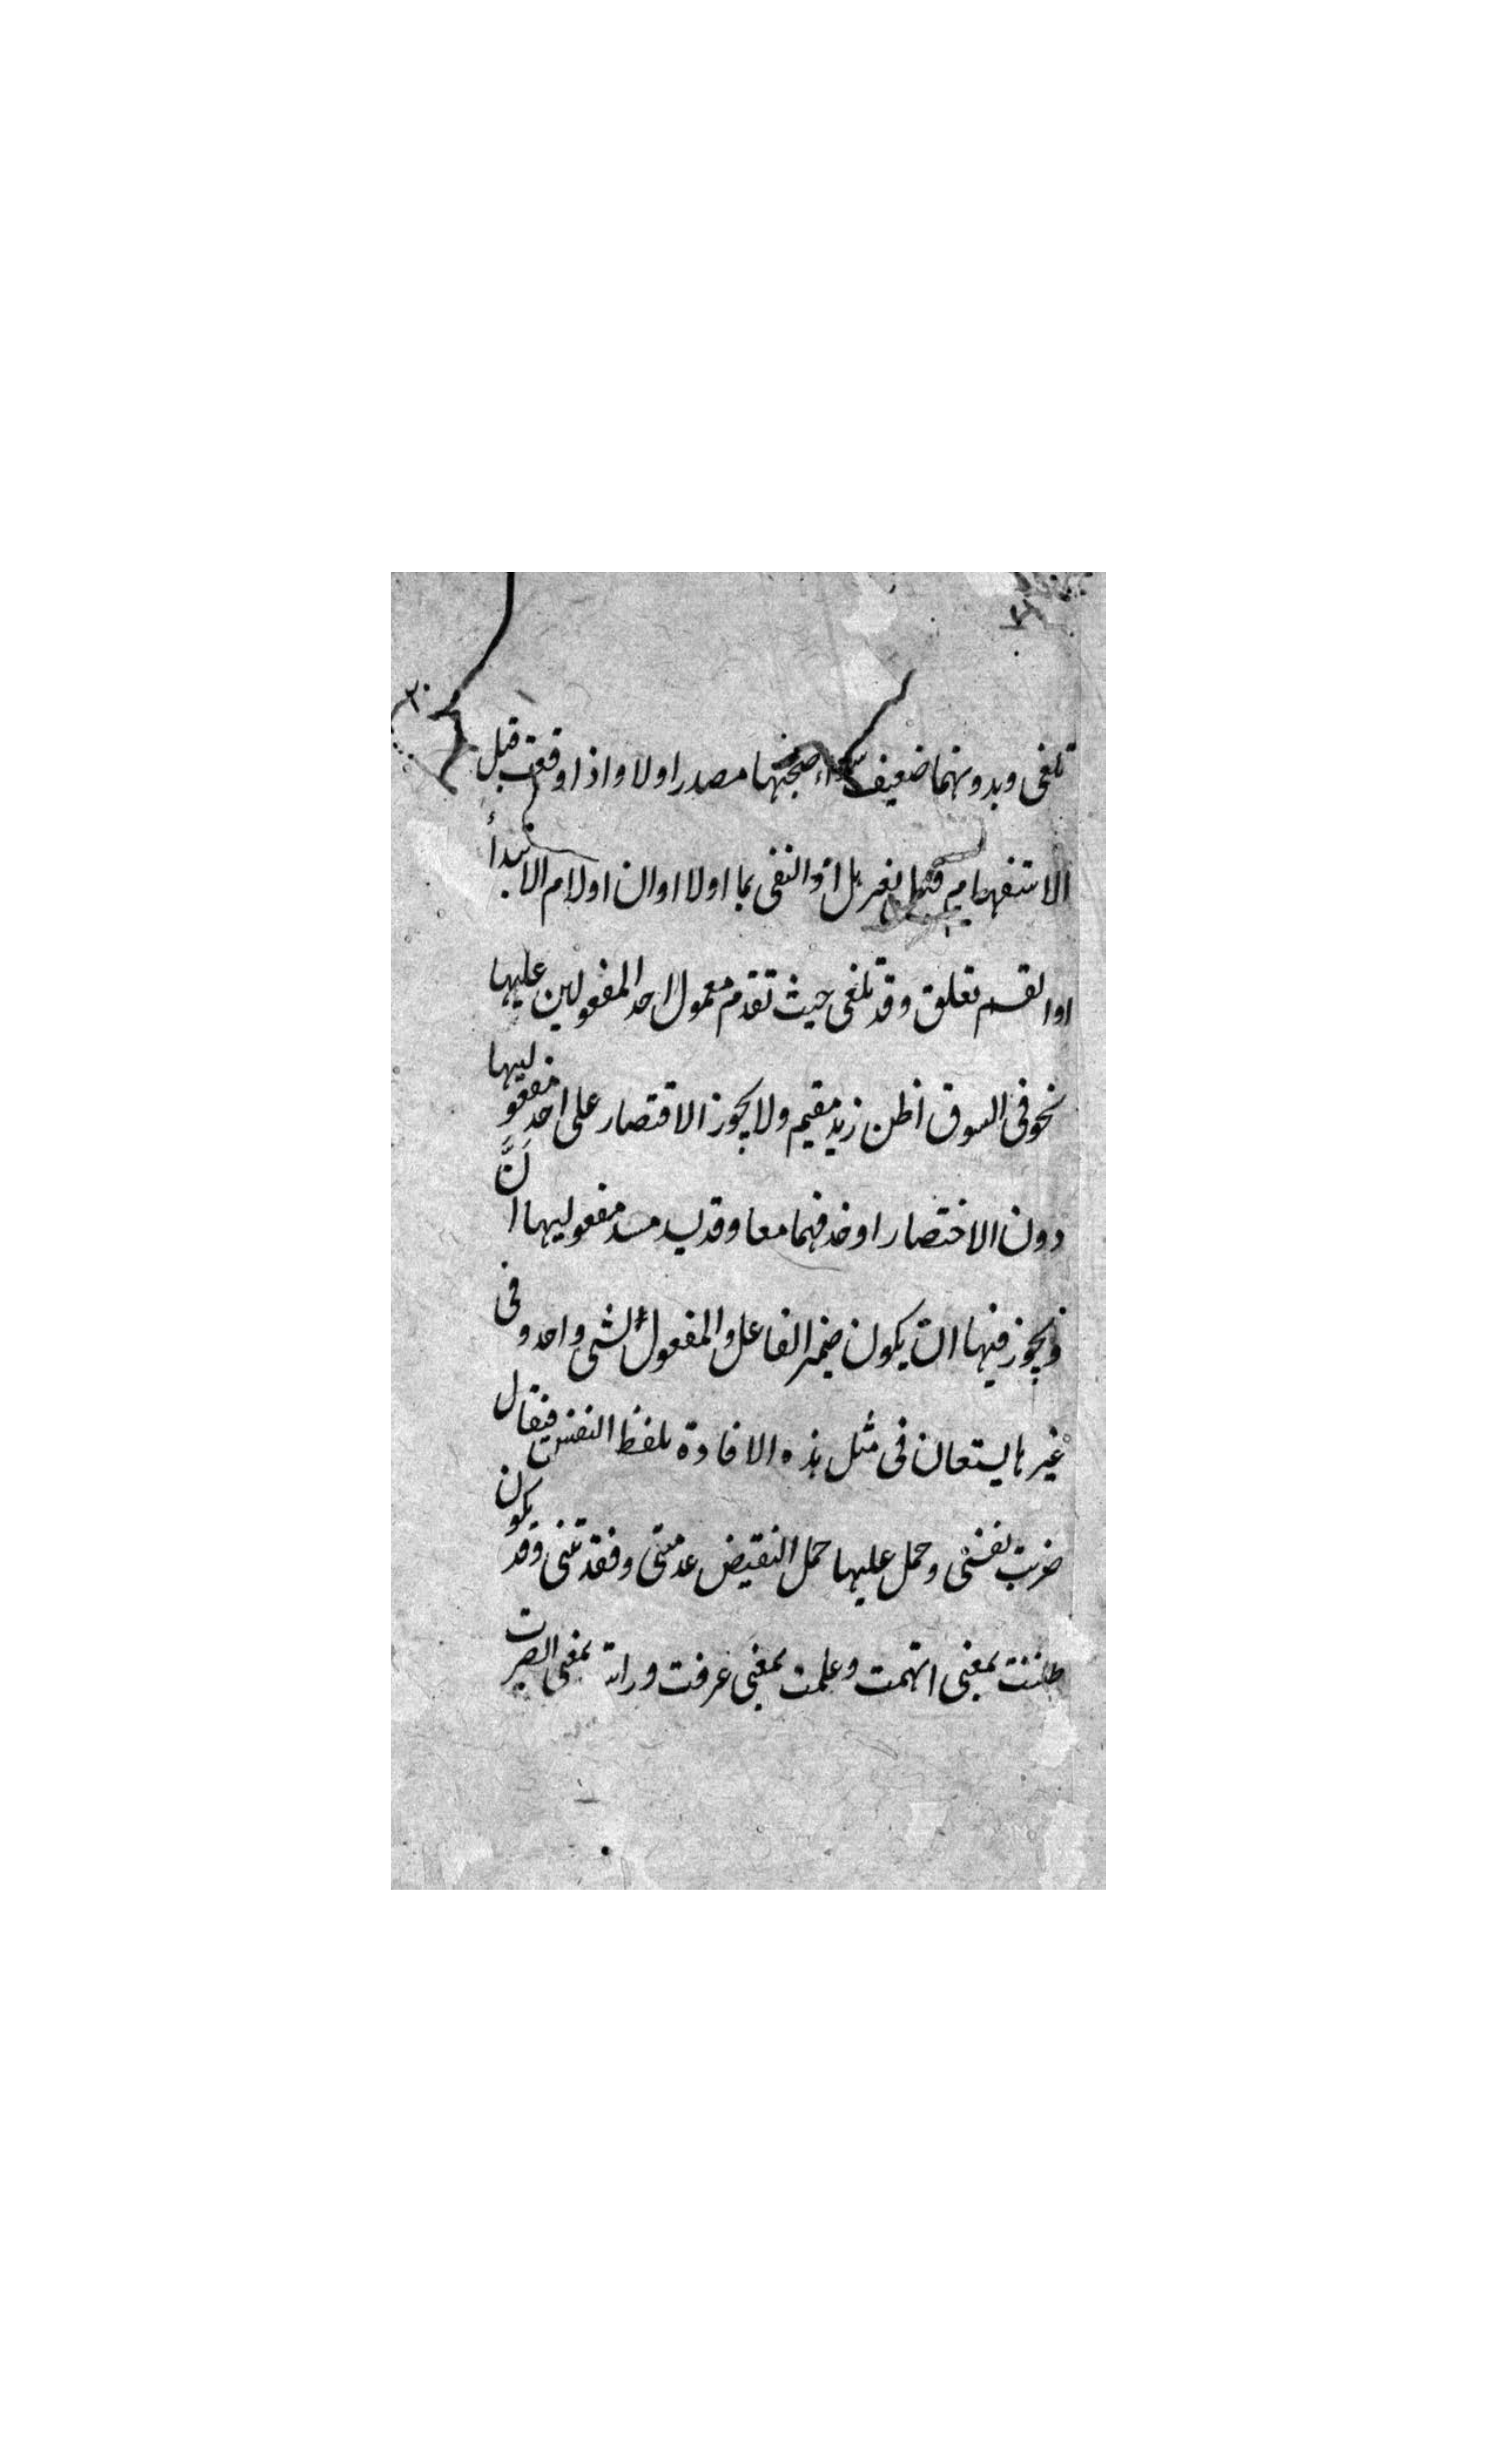 ٣٠
تلغى وبدونهما ضعيف سواء صحبتها مصدر اولا واذا وقعت قبل
الاستفهام بغير هل او النفى بما اولا اوان اولام الابتدأ
اوالقسم تعلق وقد تلغى حيث تقدم معمول احد المفعولين عليها
نحو فى السوق اظن زيد مقيم ولا يجوز الاقتصار على احد مفعوليها
دون الاختصار او حذفهما معا وقد يسد مسد مفعوليها انَّ
ويجوز فيها ان يكون ضمير الفاعل والمفعول لشئ واحد وفى
غيرها يستعان فى مثل هذه الافادة بلفظ النفس فيقال
ضربت نفسى وحمل عليها حمل النقيض عدمتنى وفقدتنى وقد يكون
ظننت بمعنى اتهمت وعلمت بمعنى عرفت ورايت بمعنى ابصرت